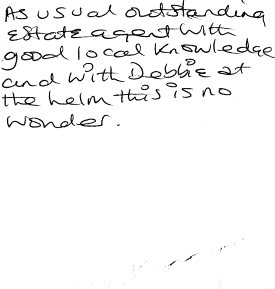 As usual outstanding
Estate agent with
good local knowledge
and with Debbie at
the helm this is no
wonder.